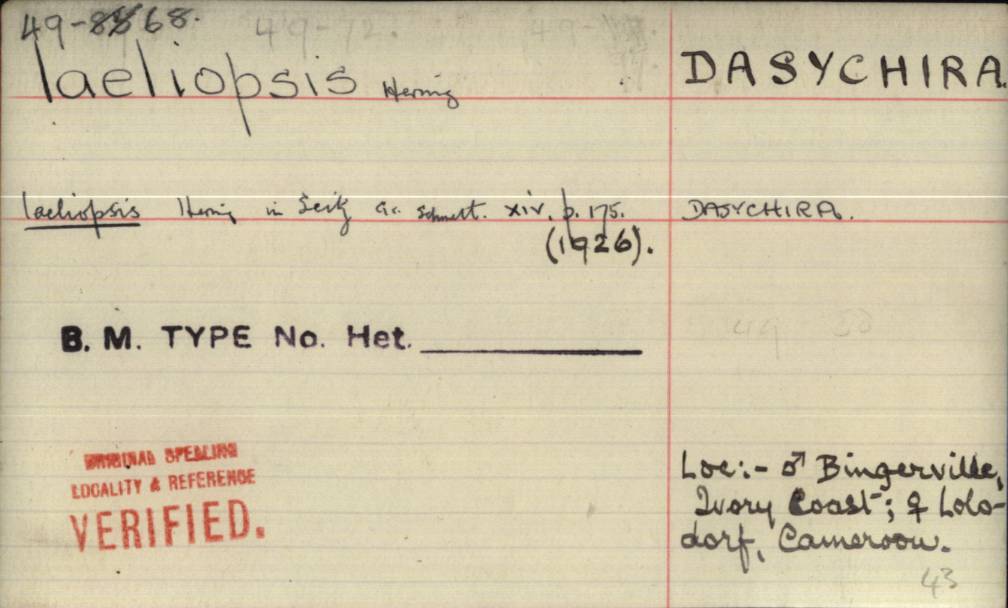 49-68. 49-72.
laeliopsis Hering DASYCHIRA.
laeliopsis Hering in Seitz Gr. Schmett. xiv. p. 175. DASYCHIRA.
(1926).
B. M. TYPE No. Het.
49
ORIGINAL SPELLING
LOCALITY & REFERENCE
VERIFIED.
Loc:- ♂ Bingerville,
Ivory Coast; ♀ Lolo-
dorf, Cameroon.
43